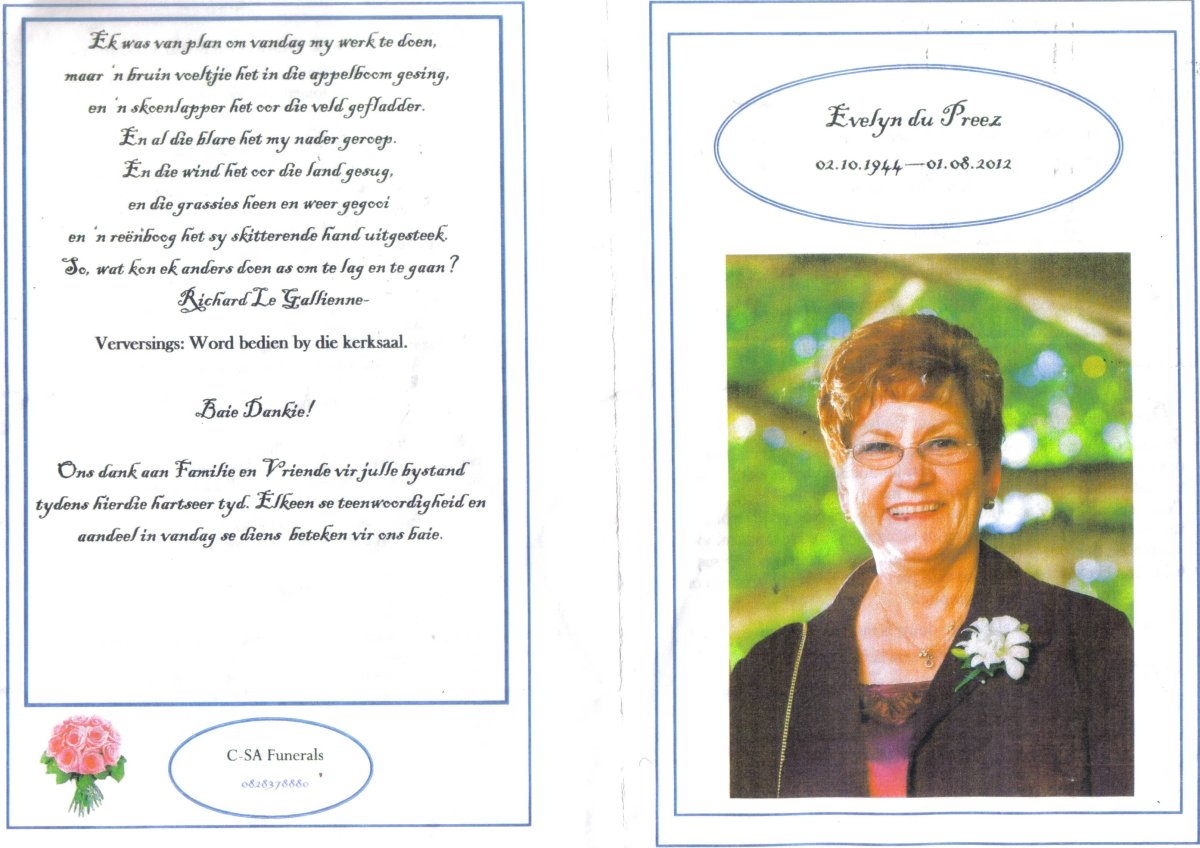 Ek was van plan om vandag my werk te doen,
maar 'n bruin voeltjie het in die appelboom gesing,
en 'n skoenlapper het oor die veld gefladder.
En al die blare het my nader geroep.
En die wind het oor die land gesug,
en die grassies heen en weer gegooi
en 'n reënboog het sy skitterende hand uitgesteek.
So, wat kon ek anders doen as om te lag en te gaan?
Richard Le Gallienne-
Verversings: Word bedien by die kerksaal.
Baie Dankie!
Ons dank aan Familie en Vriende vir julle bystand
tydens hierdie hartseer tyd. Elkeen se teenwoordigheid en
aandeel in vandag se diens beteken vir ons baie.
C-SA Funerals
0828378880
Evelyn du Preez
02.10.1944—01.08.2012